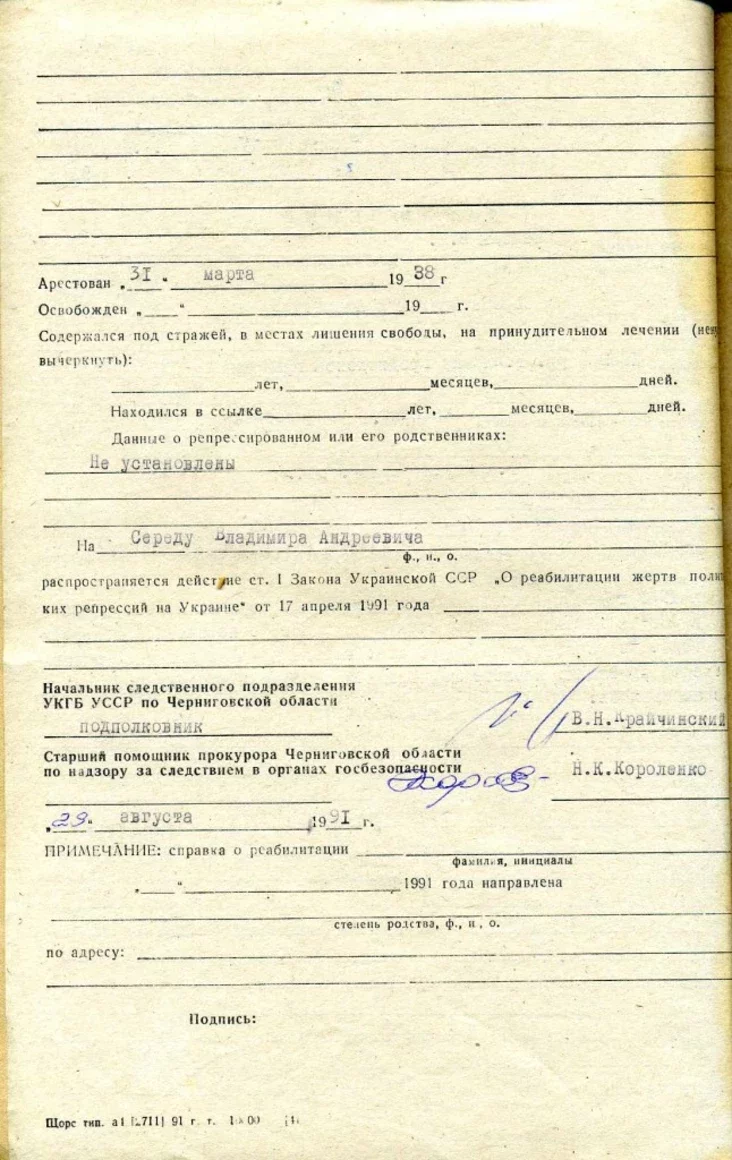 Арестован „31“ марта 1938 г
Освобожден „____“ 19___ г.
Содержался под стражей, в местах лишения свободы, на принудительном лечении
вычеркнуть):
лет, месяцев, дней.
Находился в ссылке лет, месяцев, дней.
Данные о репрессированном или его родственниках:
Не установлены
На Середу Владимира Андреевича
ф., и., о.
распространяется действие ст. 1 Закона Украинской ССР „О реабилитации жертв
ких репрессий на Украине“ от 17 апреля 1991 года
Начальник следственного подразделения
УКГБ УССР по Черниговской области
подполковник В.Н.Крайчинский
Старший помощник прокурора Черниговской области
по надзору за следствием в органах госбезопасности Н.К.Короленко
„29“ августа 1991 г.
ПРИМЕЧАНИЕ: справка о реабилитации
фамилия, инициалы
„____“ 1991 года направлена
степень родства, ф., и., о.
по адресу:
Подпись:
Щорс тип. 91 г. т.